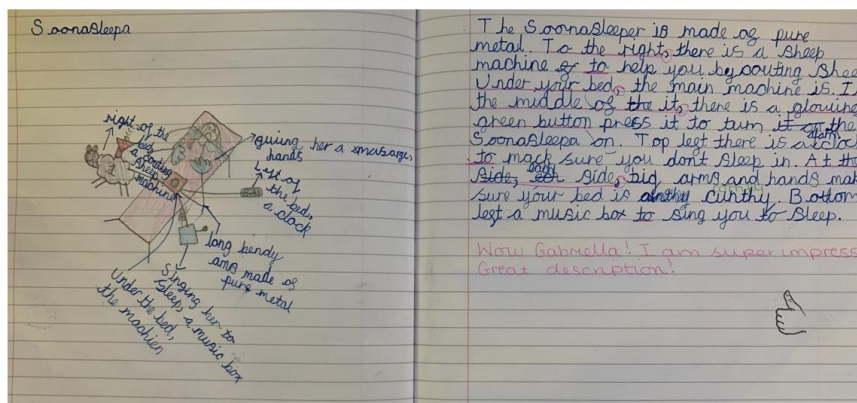 Soonasleepa
right of the
bed
a couting
sheep
machine
giving her a masarge,
hands
left of
the bed,
a clock
long bendy
arms made of
pure metal
Singing her to
sleep, a music box
Under the bed,
the machien
The Soonasleeper is made of pure
metal. To the right, there is a sheep
machine to help you by couting shee
Under your bed, the main machine is. I
the middle of it, there is a glowing
green button press it to turn the
Soonasleepa on. Top left there is a alarm clock
to mack sure you don't sleep in. At th
side, side, big arms and hands mak
sure your bed is comfy. Bottom
left a music box to sing you to sleep.
Wow Gabriella! I am super impress
Great description!